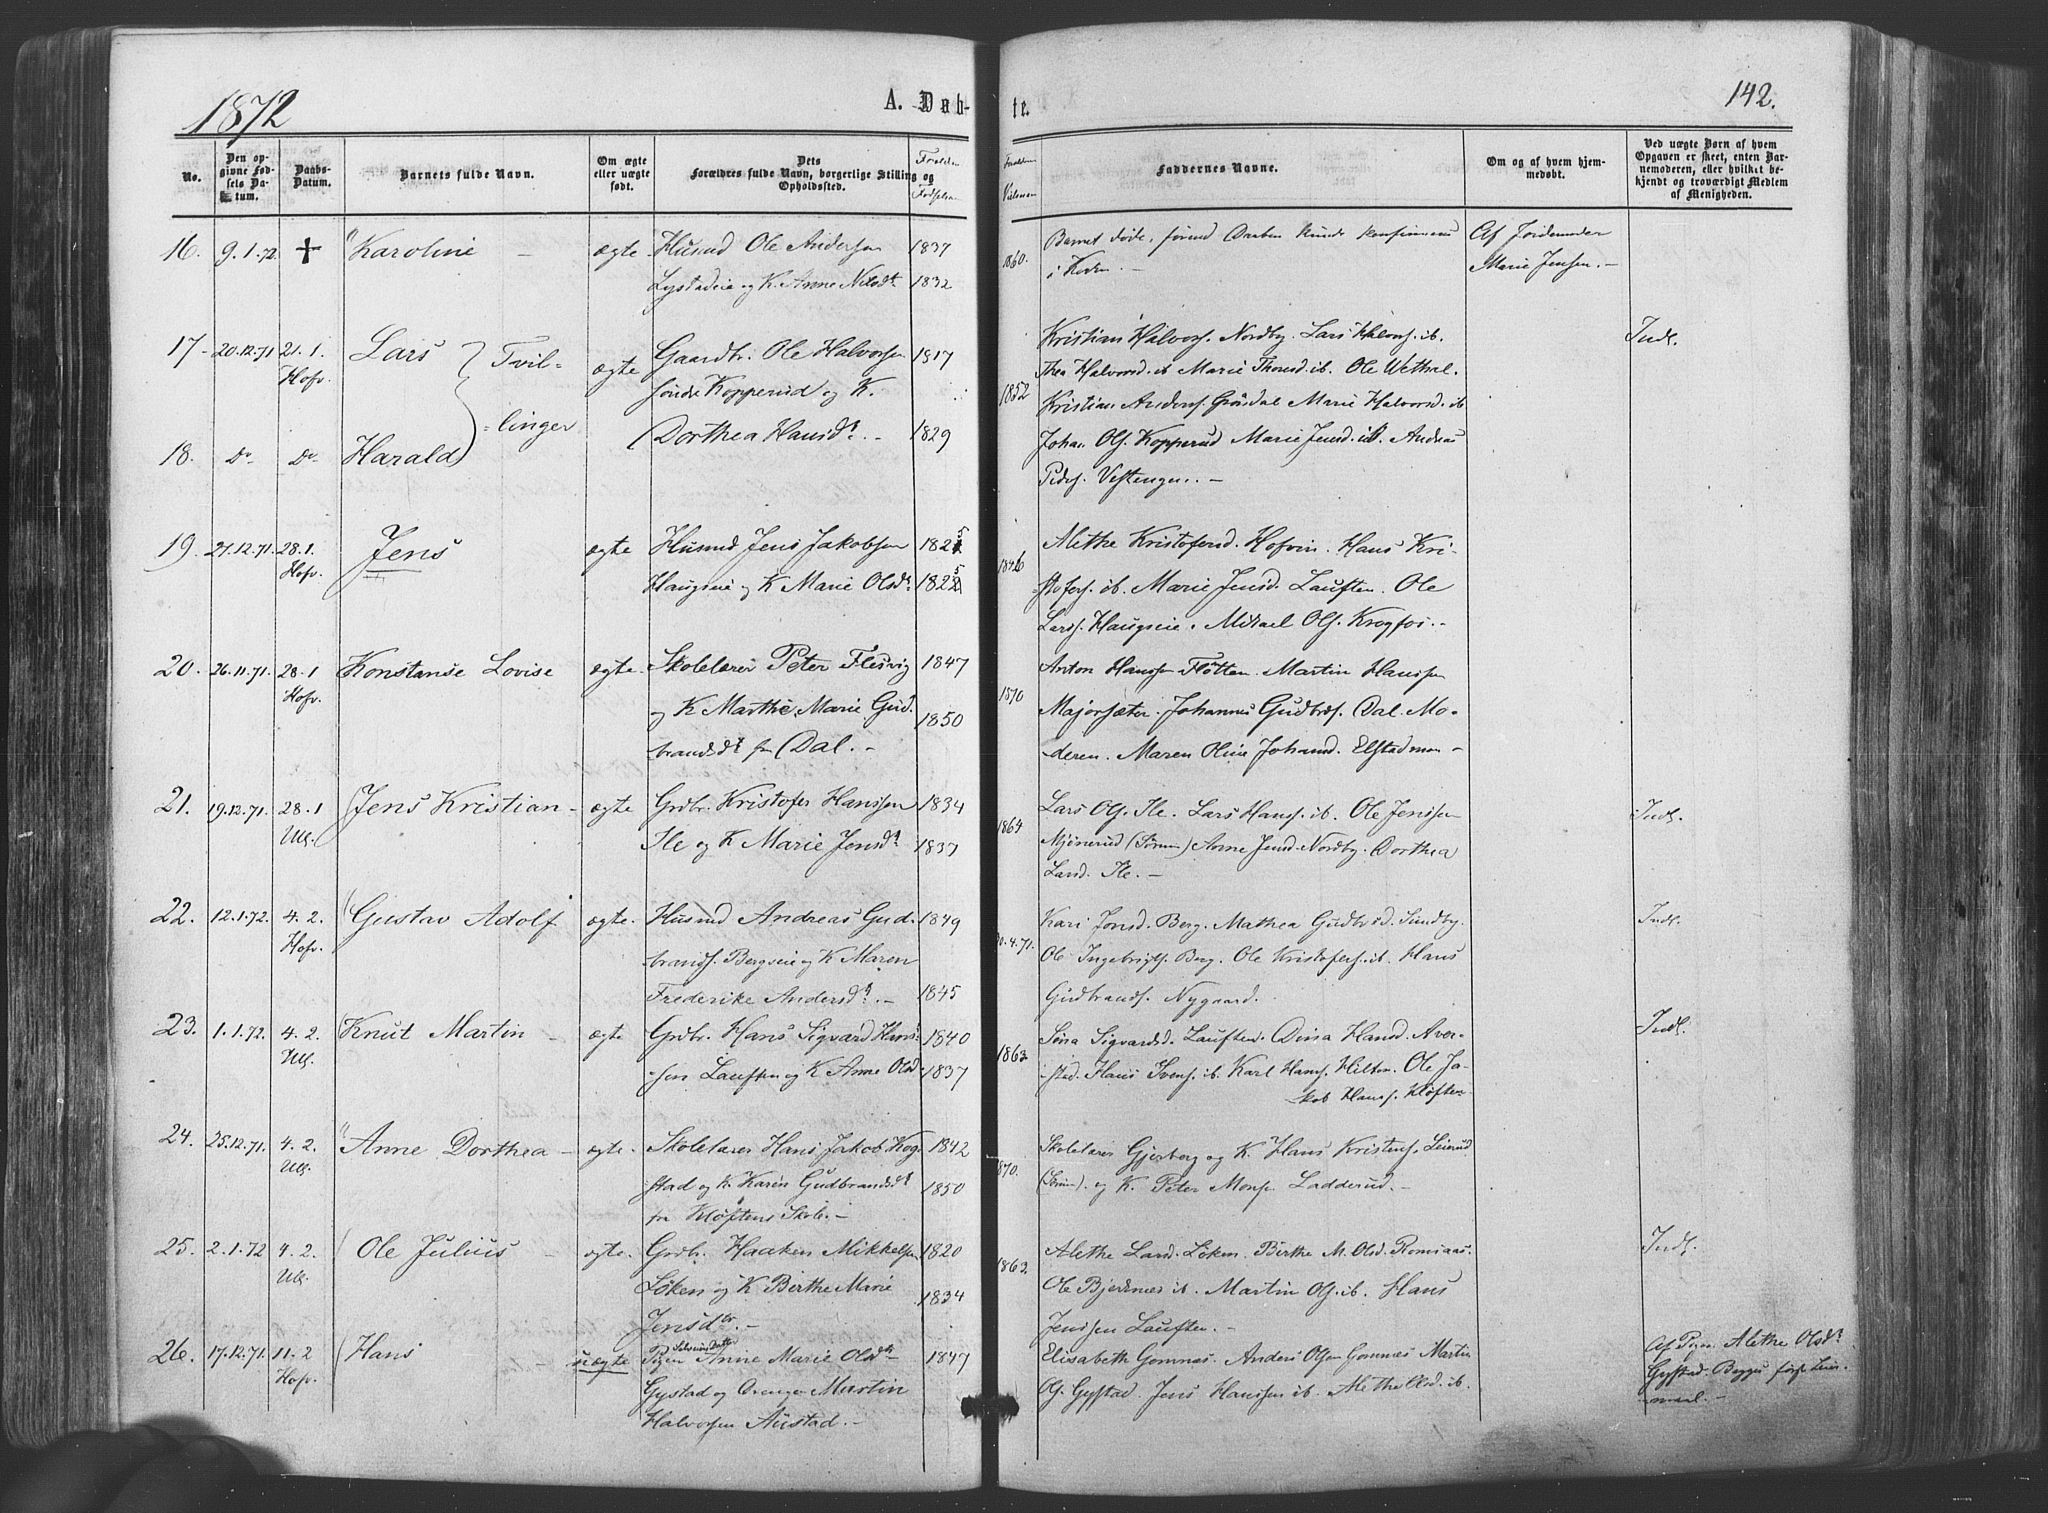 1872
A. Døb-
te.
142.
No.
Den op-
givne Fød-
sels Da-
tum.
Daabs-
Datum.
Barnets fulde Navn.
Om ægte
eller uægte
født.
Dets
Forældres fulde Navn, borgerlige Stilling og
Opholdssted.
Faddernes Navne.
Om og af hvem hjem-
medøbt.
Ved uægte Børn af hvem
Opgaven er skeet, enten Bar-
nemoderen, eller hvilket be-
kjendt og troværdigt Medlem
af Menigheden.
16. 9.1.72 + Karoline – ægte Husmd Ole Andersen 1837
Lystadeie og K. Anne Nilsdt 1832
1860.
Barnet døde, førend Daaben kunde
i Kirken. –
Af Jordemoder
Marie Jensen. –
17 20.12.71 21.1. Hofv. Lars Tvil- ægte Gaardbr. Ole Halvorsen 1817
søndre Kopperud og K.
18. Do Do Harald linger Dorthea Hansdt. – 1829
1852
Kristian Halvors. Nordby. Lars Halvors. ib.
Thea Halvorsd. ib Marie Thorsd. ib. Ole Wethal.
Kristian Anders. Grønsdal Marie Halvorsd. ib
Johan Ols. Kopperud Marie Jensd. ib. Andreas
Peders. Vestengen. –
Indl.
19. 27.12.71. 28.1. Hofv. Jens ægte Husmd Jens Jakobsen 1825
Haugseie og K Marie Olsdt 1825
1846
Alethe Kristofersd. Hofvin. Hans Kri-
stofers. ib. Marie Jensd. Lauften. Ole
Larss. Haugseie. Mikael Ols. Krogfos. –
20. 26.11.71. 28.1 Hofv. Konstanse Lovise ægte Skolelærer Peter Flesvig 1847
og K Marthe Marie Gud- 1850
brandsdt fra Dal. –
1870
Anton Hanssen Fløtten. Martin Hanssen
Majorsæter. Johannes Gudbrds. Dal. Mo-
deren. Maren Oline Johansd. Elstadmon –
21. 19.12.71. 28.1 Ull. Jens Kristian – ægte Grdbr. Kristofer Hanssen 1834
Ile og K Marie Jensdt 1837
1864
Lars Ols. Ile. Lars Hanss. ib. Ole Jenssen
Mjønerud (Sørum) Anne Jensd. Nordby. Dorthea
Larsd. Ile. –
Indl.
22. 12.1.72. 4.2. Hofv. Gustav Adolf ægte. Husmd Andreas Gud- 1849
brands. Bergseie og K Maren
Frederike Andersdt. – 1845
4.71.
Kari Jonsd. Berg. Mathea Gudbrsd. Sundby.
Ole Ingebrigts. Berg. Ole Kristofers. ib. Hans
Gudbrands. Nygaard.
Indl.
23. 1.1.72. 4.2. Ull. Knut Martin – ægte Grdbr. Hans Sigvard Hans- 1840
sen Lauften og K Anne Olsd 1837
1863.
Sina Sigvardsd. Lauften. Dina Hansd. Aver-
stad. Hans Svens. ib. Karl Hanss. Hilton. Ole Ja-
kob Hanss. Kløften
Indl.
24. 25.12.71. 4.2. Ull. Anne Dorthea – ægte. Skolelærer Hans Jakob Kog- 1842
stad og K Karen Gudbrandsdt 1850
fra Kløftens Skole. –
1870.
Skolelærer Gjesberg og K. Hans Kristens. Leierud
(Sørum). og K. Peter Mons. Ladderud. –
25. 2.1.72 4.2. Ull. Ole Julius – ægte. Grdbr. Haaken Mikkelsen 1820
Løken og K Birthe Marie 1834
Jensdtr. –
1863.
Alethe Larsd. Løken. Birthe M. Olsd. Romsaas.
Ole Bjerknes ib. Martin Ols. ib. Hans
Jenssen Lauften. –
Indl.
26. 17.12.71. 11.2 Hofv. Hans – uægte Pigen Anne Marie Olsdt 1847
Gystad og Martin
Halvorsen Austad. –
Elisabeth Gomnæs. Anders Olsen Gomnæs Martin
Ols. Gystad. Jens Hanssen ib. Alethe Olsd. ib.
Af Pigen Alethe Olsdt
Gystad. Begges første Leier-
maal. –